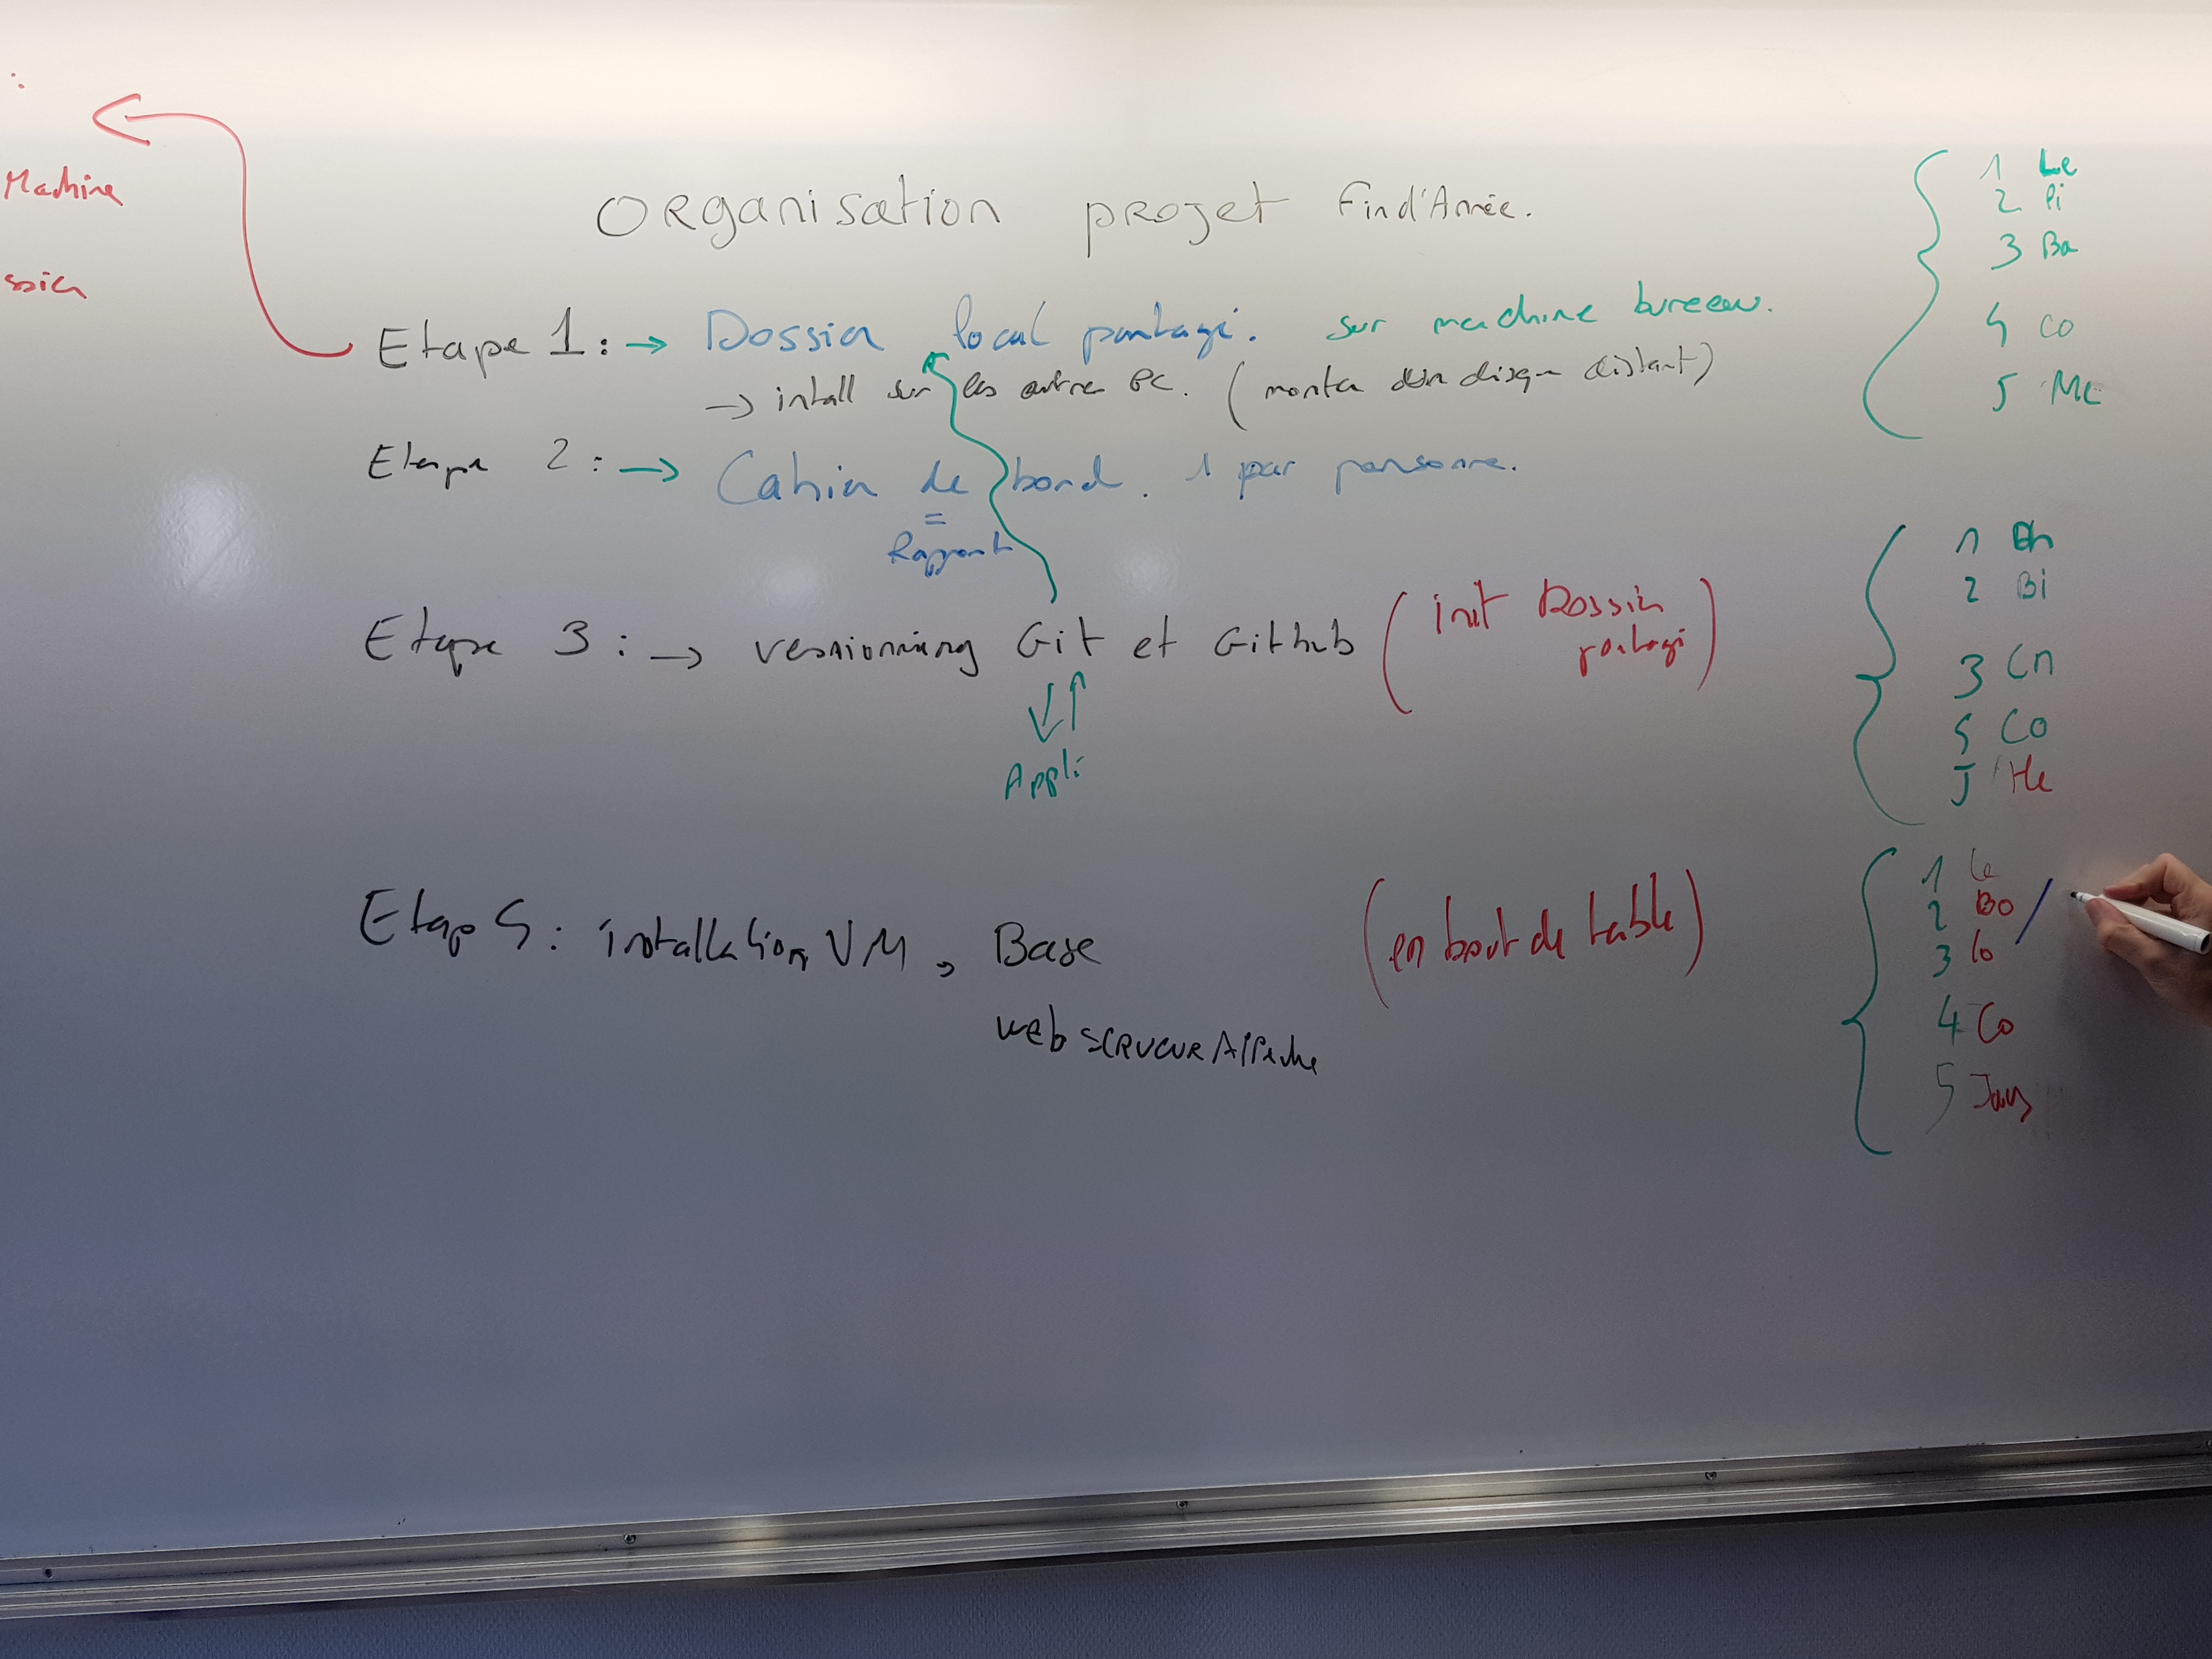 Machine
ssier
Organisation projet Find'Année.
Etape 1 : → Dossier local partagé. sur machine bureau.
→ intall sur les autre PC. (monter d'un disque distant)
Etape 2 : → Cahier de bord. 1 par personne.
=
Rapport
Etape 3 : → versionning Git et Github (init Dossier partagé)
Appli
Etap 4 : installation VM → Base (en bout de table)
web serveur Appache
1 Le
2 Pi
3 Ba
4 Co
5 Me
1
2 Bi
3
4 Co
5 He
1 Le
2 Bo
3 lo
4 Co
5